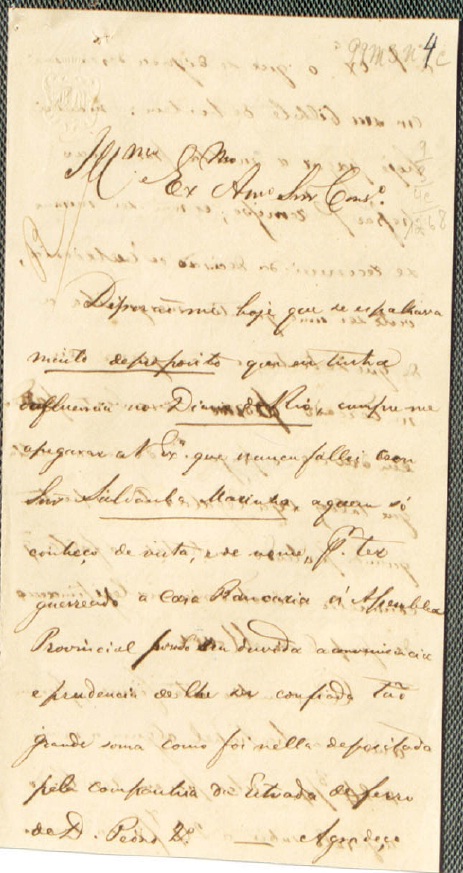 4
Illmo
e Ex Amo Snr Conso
Disserão me hoje que se espalhava
muito de proposito que eu tinha
influencia no Diario do Rio, cumpre me
assegurar a V Exa que nunca fallei com
Snr Saldanha Marinho, a quem só
conheço de vista, e de nome, pr ter
guerreado a Casa Bancaria n'Assemblea
Provincial pondo em duvida a conveniencia
e prudencia de lhe ser confiada tão
grande soma como foi nella depositada
pela companhia da Estrada de ferro
de D. Pedro 2o Agradeço